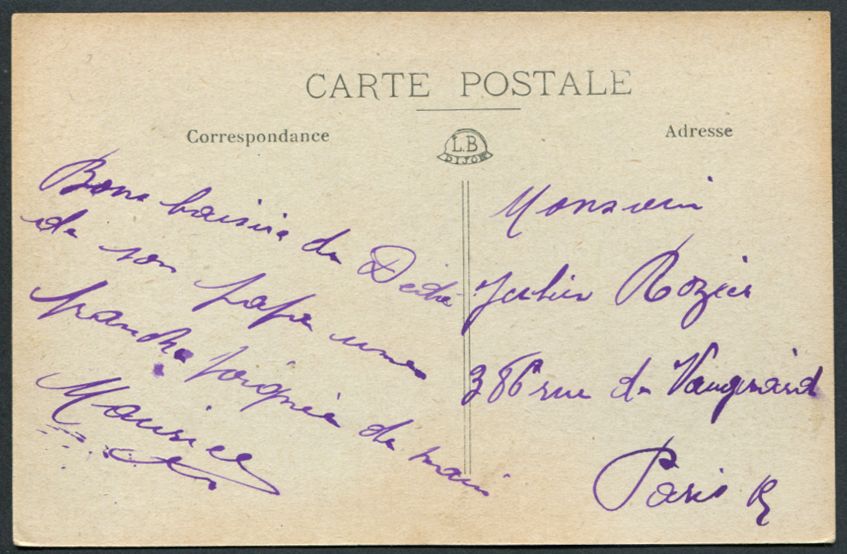 CARTE POSTALE
Correspondance
Bons baisers de Dédé
de son papa une
franche poignée de main
Maurice
L.B
DIJON
Adresse
Monsieur
Julien Rozier
386 rue de Vaugirard
Paris